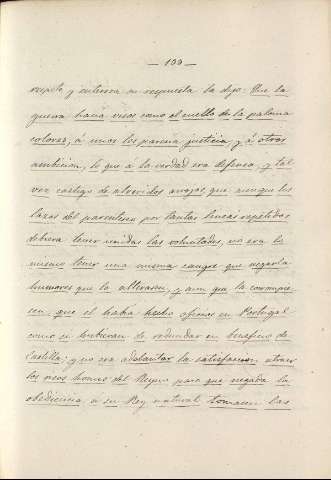 — 100 —
respeto y entereza su respuesta la dijo: Que la
guerra hacia visos como el cuello de la paloma
colores, á unos les parecia justicia, y á otros
ambicion, lo que á la verdad era defensa, y tal
vez castigo de atrevidos arrojos que aunque los
lazos del parentesco por tantas lineas repetidos
debiera tener unidas las voluntades, no era lo
mismo tener una misma sangre que negarla
humores que la alterasen, y aun que la corrompie-
sen, que el habia hecho oficios en Portugal
como si hubieran de redundar en beneficio de
Castilla; y no era adelantar la satisfaccion, atraer
los ricos homes del Reyno para que negada la
obediencia á su Rey natural tomasen las